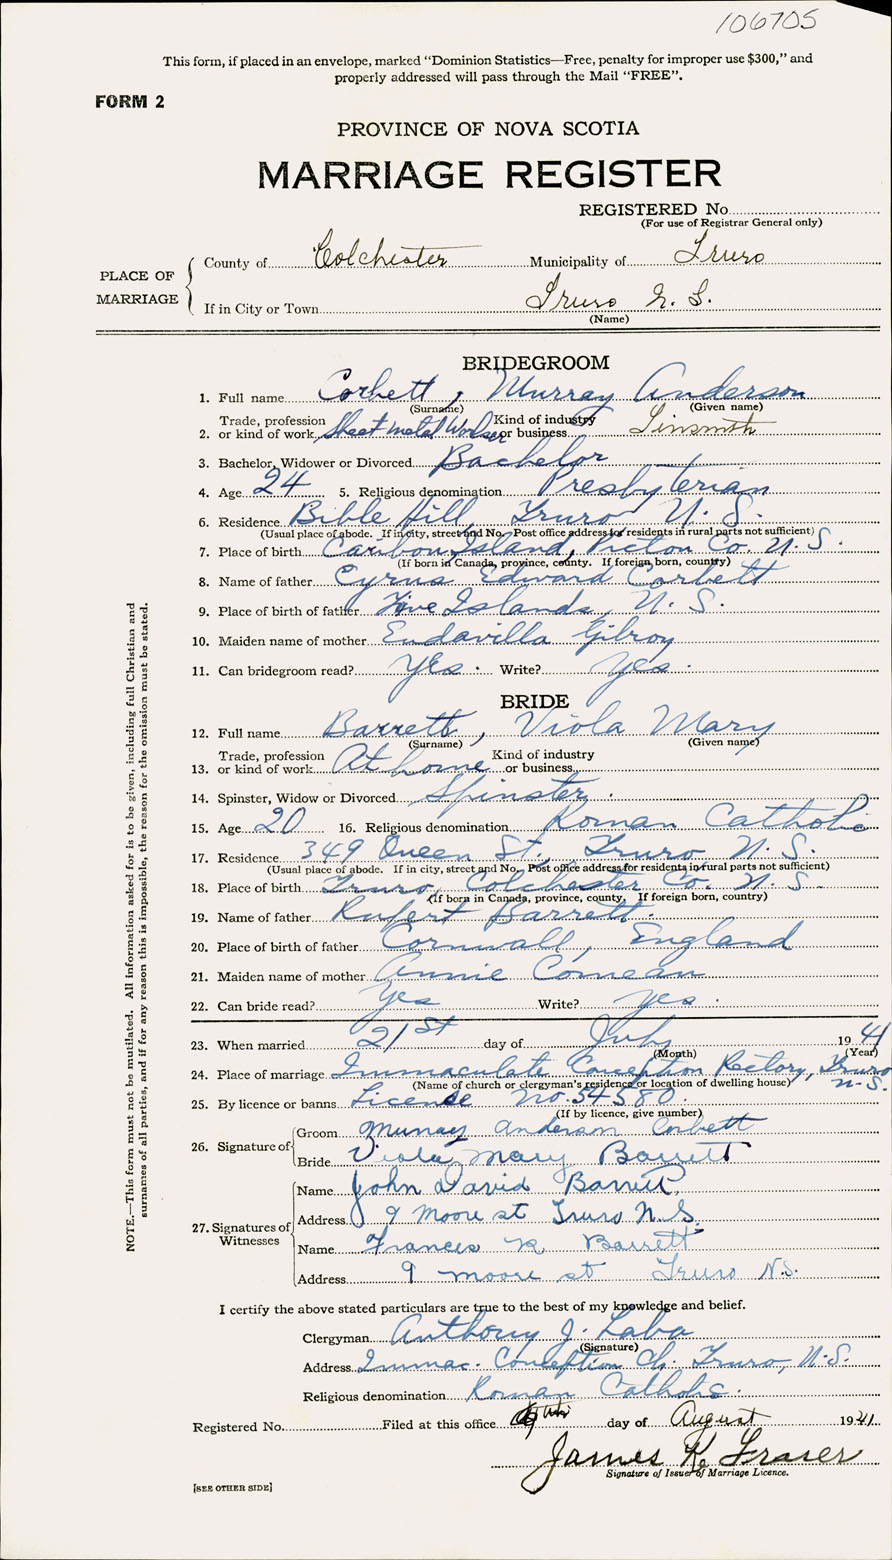 106705
This form, if placed in an envelope, marked "Dominion Statistics—Free, penalty for improper use $300," and
properly addressed will pass through the Mail "FREE".
FORM 2
PROVINCE OF NOVA SCOTIA
MARRIAGE REGISTER
REGISTERED No.
(For use of Registrar General only)
PLACE OF MARRIAGE
County of Colchester Municipality of Truro
If in City or Town Truro N. S.
(Name)
BRIDEGROOM
1. Full name Corbett, Murray Anderson
(Surname) (Given name)
Trade, profession Kind of industry
2. or kind of work Sheet metal Worker or business Tinsmith
3. Bachelor, Widower or Divorced Bachelor
4. Age 24 5. Religious denomination Presbyterian
6. Residence Bible Hill, Truro N. S.
(Usual place of abode. If in city, street and No. Post office address for residents in rural parts not sufficient)
7. Place of birth Caribou Island, Pictou Co. N. S.
(If born in Canada, province, county. If foreign born, country)
8. Name of father Cyrus Edward Corbett
9. Place of birth of father Five Islands, N. S.
10. Maiden name of mother Eudavilla Gilroy
11. Can bridegroom read? Yes. Write? Yes.
BRIDE
12. Full name Barrett, Viola Mary
(Surname) (Given name)
Trade, profession Kind of industry
13. or kind of work At home or business
14. Spinster, Widow or Divorced Spinster.
15. Age 20 16. Religious denomination Roman Catholic
17. Residence 349 Queen St., Truro N. S.
(Usual place of abode. If in city, street and No. Post office address for residents in rural parts not sufficient)
18. Place of birth Truro, Colchester Co. N. S.
(If born in Canada, province, county. If foreign born, country)
19. Name of father Rufert Barrett.
20. Place of birth of father Cornwall, England
21. Maiden name of mother Annie Comeau
22. Can bride read? Yes Write? Yes.
23. When married 21st day of July 1941
(Month) (Year)
24. Place of marriage Immaculate Conception Rectory, Truro N.S.
(Name of church or clergyman's residence or location of dwelling house)
25. By licence or banns License No. 54580.
(If by licence, give number)
26. Signature of Groom Murray Anderson Corbett
Bride Viola Mary Barrett
27. Signatures of Witnesses
Name John David Barrett.
Address 9 Moore st Truro N.S.
Name Frances R Barrett
Address 9 moore st Truro N.S.
I certify the above stated particulars are true to the best of my knowledge and belief.
Clergyman Anthony J. Laba
(Signature)
Address Immac. Conception Ch. Truro, N.S.
Religious denomination Roman Catholic.
Registered No. Filed at this office day of August 1941
James K. Fraser
Signature of Issuer of Marriage Licence.
[SEE OTHER SIDE]
NOTE.—This form must not be mutilated. All information asked for is to be given, including full Christian and
surnames of all parties, and if for any reason this is impossible, the reason for the omission must be stated.